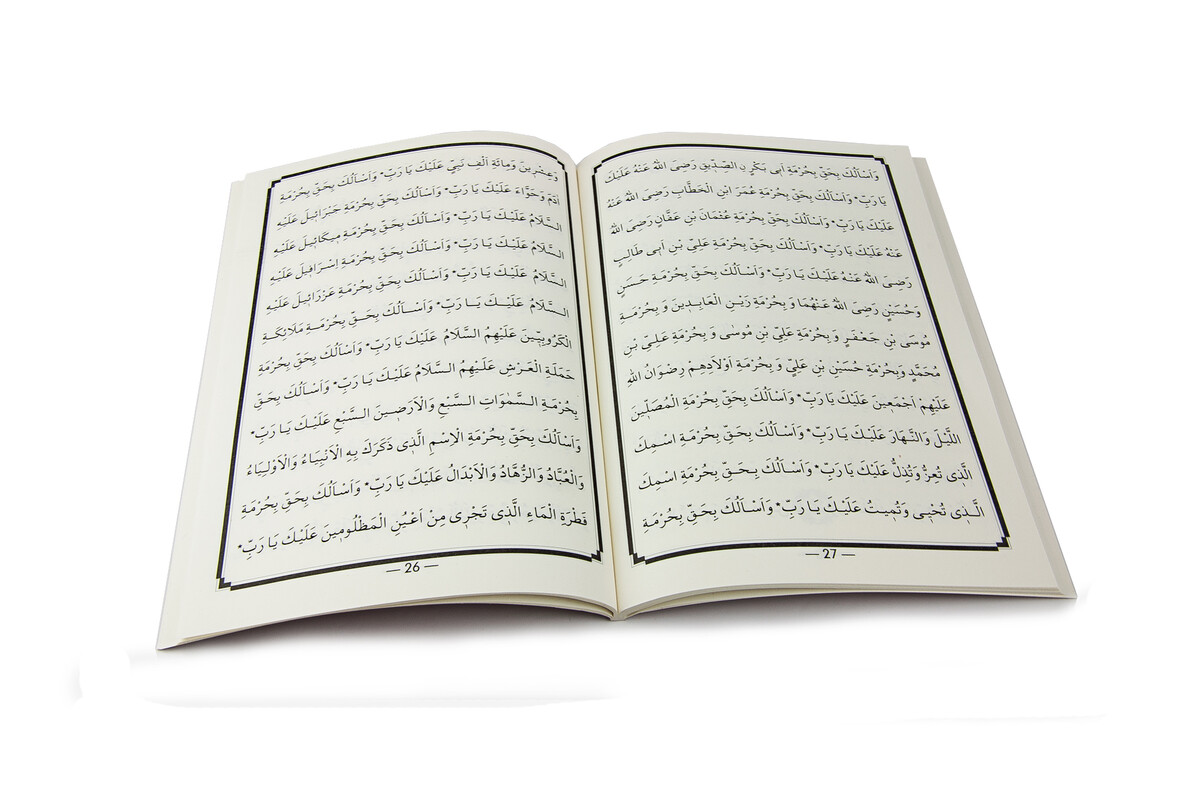 وَعِشْرِينَ وَمِائَةِ اَلْفِ نَبِيٍّ عَلَيْكَ يَا رَبِّ * وَاَسْأَلُكَ بِحَقِّ بِحُرْمَةِ
اٰدَمَ وَحَوَّاءَ عَلَيْكَ يَا رَبِّ * وَاَسْأَلُكَ بِحَقِّ بِحُرْمَةِ جَبْرَائِيلَ عَلَيْهِ
السَّلَامُ عَلَيْكَ يَا رَبِّ * وَاَسْأَلُكَ بِحَقِّ بِحُرْمَةِ مِيكَائِيلَ عَلَيْهِ
السَّلَامُ عَلَيْكَ يَا رَبِّ * وَاَسْأَلُكَ بِحَقِّ بِحُرْمَةِ اِسْرَافِيلَ عَلَيْهِ
السَّلَامُ عَلَيْكَ يَا رَبِّ * وَاَسْأَلُكَ بِحَقِّ بِحُرْمَةِ عَزْرَائِيلَ عَلَيْهِ
السَّلَامُ عَلَيْكَ يَا رَبِّ * وَاَسْأَلُكَ بِحَقِّ بِحُرْمَةِ مَلَائِكَةِ
الْكَرُوبِيِّينَ عَلَيْهِمُ السَّلَامُ عَلَيْكَ يَا رَبِّ * وَاَسْأَلُكَ بِحَقِّ بِحُرْمَةِ
حَمَلَةِ الْعَرْشِ عَلَيْهِمُ السَّلَامُ عَلَيْكَ يَا رَبِّ * وَاَسْأَلُكَ بِحَقِّ
بِحُرْمَةِ السَّمٰوَاتِ السَّبْعِ وَالْاَرَضِينَ السَّبْعِ عَلَيْكَ يَا رَبِّ *
وَاَسْأَلُكَ بِحَقِّ بِحُرْمَةِ الْاِسْمِ الَّذِى ذَكَرَكَ بِهِ الْاَنْبِيَاءُ وَالْاَوْلِيَاءُ
وَالْعُبَّادُ وَالزُّهَّادُ وَالْاَبْدَالُ عَلَيْكَ يَا رَبِّ * وَاَسْأَلُكَ بِحَقِّ بِحُرْمَةِ
قَطْرَةِ الْمَاءِ الَّذِى تَجْرِى مِنْ اَعْيُنِ الْمَظْلُومِينَ عَلَيْكَ يَا رَبِّ *
— 26 —
وَاَسْأَلُكَ بِحَقِّ بِحُرْمَةِ اَبِى بَكْرٍ الصِّدِّيقِ رَضِىَ اللّٰهُ عَنْهُ عَلَيْكَ
يَا رَبِّ * وَاَسْأَلُكَ بِحَقِّ بِحُرْمَةِ عُمَرَ ابْنِ الْخَطَّابِ رَضِىَ اللّٰهُ عَنْهُ
عَلَيْكَ يَا رَبِّ * وَاَسْأَلُكَ بِحَقِّ بِحُرْمَةِ عُثْمَانَ بْنِ عَفَّانَ رَضِىَ اللّٰهُ
عَنْهُ عَلَيْكَ يَا رَبِّ * وَاَسْأَلُكَ بِحَقِّ بِحُرْمَةِ عَلِىِّ بْنِ اَبِى طَالِبٍ
رَضِىَ اللّٰهُ عَنْهُ عَلَيْكَ يَا رَبِّ * وَاَسْأَلُكَ بِحَقِّ بِحُرْمَةِ حَسَنٍ
وَحُسَيْنٍ رَضِىَ اللّٰهُ عَنْهُمَا وَ بِحُرْمَةِ زَيْنِ الْعَابِدِينَ وَ بِحُرْمَةِ
مُوسَى بْنِ جَعْفَرٍ وَ بِحُرْمَةِ عَلِىِّ بْنِ مُوسٰى وَ بِحُرْمَةِ عَلِىِّ بْنِ
مُحَمَّدٍ وَبِحُرْمَةِ حُسَيْنِ بْنِ عَلِىٍّ وَ بِحُرْمَةِ اَوْلَادِهِمْ رِضْوَانُ اللّٰهِ
عَلَيْهِمْ اَجْمَعِينَ عَلَيْكَ يَا رَبِّ * وَاَسْأَلُكَ بِحَقِّ بِحُرْمَةِ الْمُصَلِّينَ
اللَّيْلَ وَالنَّهَارَ عَلَيْكَ يَا رَبِّ * وَاَسْأَلُكَ بِحَقِّ بِحُرْمَةِ اسْمِكَ
الَّذِى تُعِزُّ وَتُذِلُّ عَلَيْكَ يَا رَبِّ * وَاَسْأَلُكَ بِحَقِّ بِحُرْمَةِ اسْمِكَ
الَّذِى تُحْيِى وَتُمِيتُ عَلَيْكَ يَا رَبِّ * وَاَسْأَلُكَ بِحَقِّ بِحُرْمَةِ
— 27 —